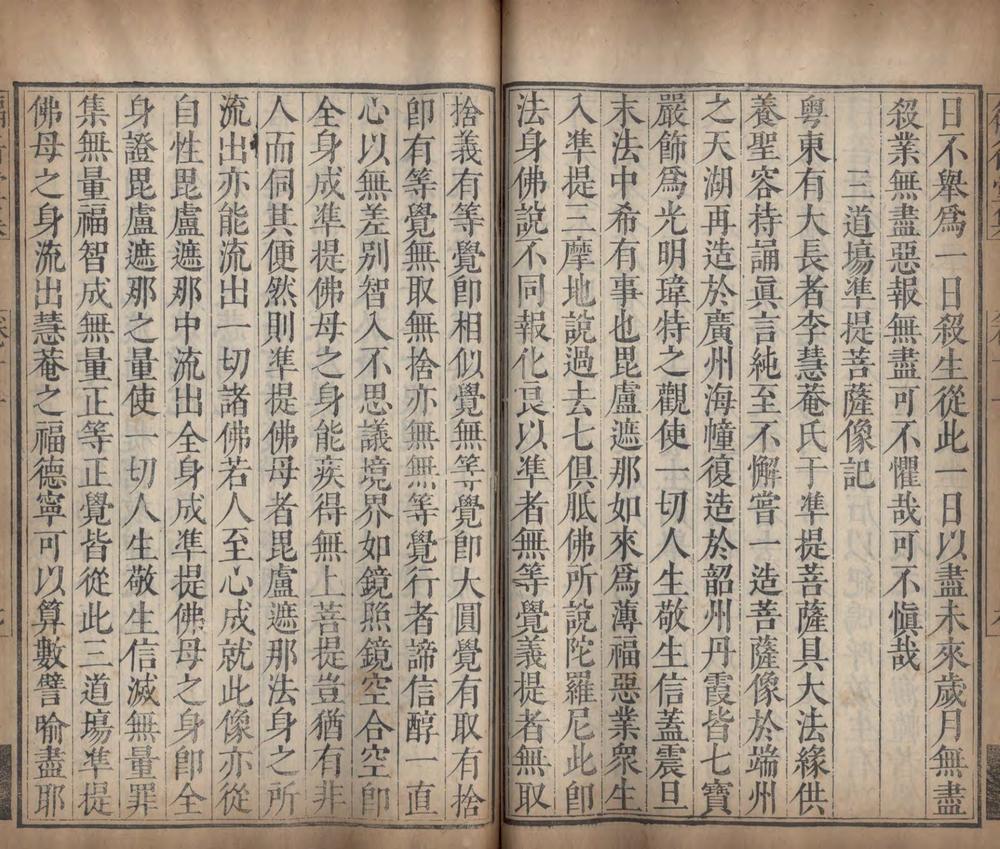 日不舉爲一日殺生從此一日以盡未來歲月無盡
殺業無盡惡報無盡可不懼哉可不愼哉
三道場準提菩薩像記
粤東有大長者李慧菴氏于準提菩薩具大法緣供
養聖容持誦眞言純至不懈嘗一造菩薩像於端州
之天湖再造於廣州海幢復造於韶州丹霞皆七寶
嚴飾爲光明瑋特之觀使一切人生敬生信蓋震旦
末法中希有事也毘盧遮那如來爲薄福惡業衆生
入準提三摩地說過去七俱胝佛所說陀羅尼此卽
法身佛說不同報化良以準者無等覺義提者無取
捨義有等覺卽相似覺無等覺卽大圓覺有取有捨
卽有等覺無取無捨亦無無等覺行者諦信醇一直
心以無差别智入不思議境界如鏡照鏡空合空卽
全身成準提佛母之身能疾得無上菩提豈猶有非
人而伺其便然則準提佛母者毘盧遮那法身之所
流出亦能流出一切諸佛若人至心成就此像亦從
自性毘盧遮那中流出全身成準提佛母之身卽全
身證毘盧遮那之量使一切人生敬生信滅無量罪
集無量福智成無量正等正覺皆從此三道場準提
佛母之身流出慧菴之福德寧可以算數譬喻盡耶